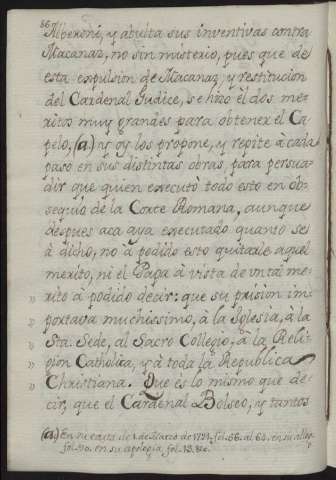 86
Alberoni, y abulta sus inventivas contra
Macanaz, no sin misterio, pues que de
esta expulsion de Macanaz y restitucion
del Cardenal Judice, se hizo èl dos me-
ritos muy grandes para obtener el Ca
pelo, (a.) ÿ oy los propone, y repite à cada
paso en sus distintas obras, para persua-
dir que quien executò todo esto en ob-
sequio de la Corte Romana, aunque
despues aca aya executado quanto se
à dicho, no à podido esto quitarle aquel
merito, ni el Papa à vista de un tal me-
rito à podido decir: que su prision im
portava muchissimo, à la Iglesia, à la
Sta. Sede, al Sacro Collegio, à la Reli-
gion Catholica, y à toda la Republica
Christiana. Que es lo mismo que de-
cir, que el Cardenal Bolseo, y tantos
(a.) En su carta de 1. de Marzo de 1721. fol. 56. al 64. en su
fol. 90. en su apologia fol. 13. &c.